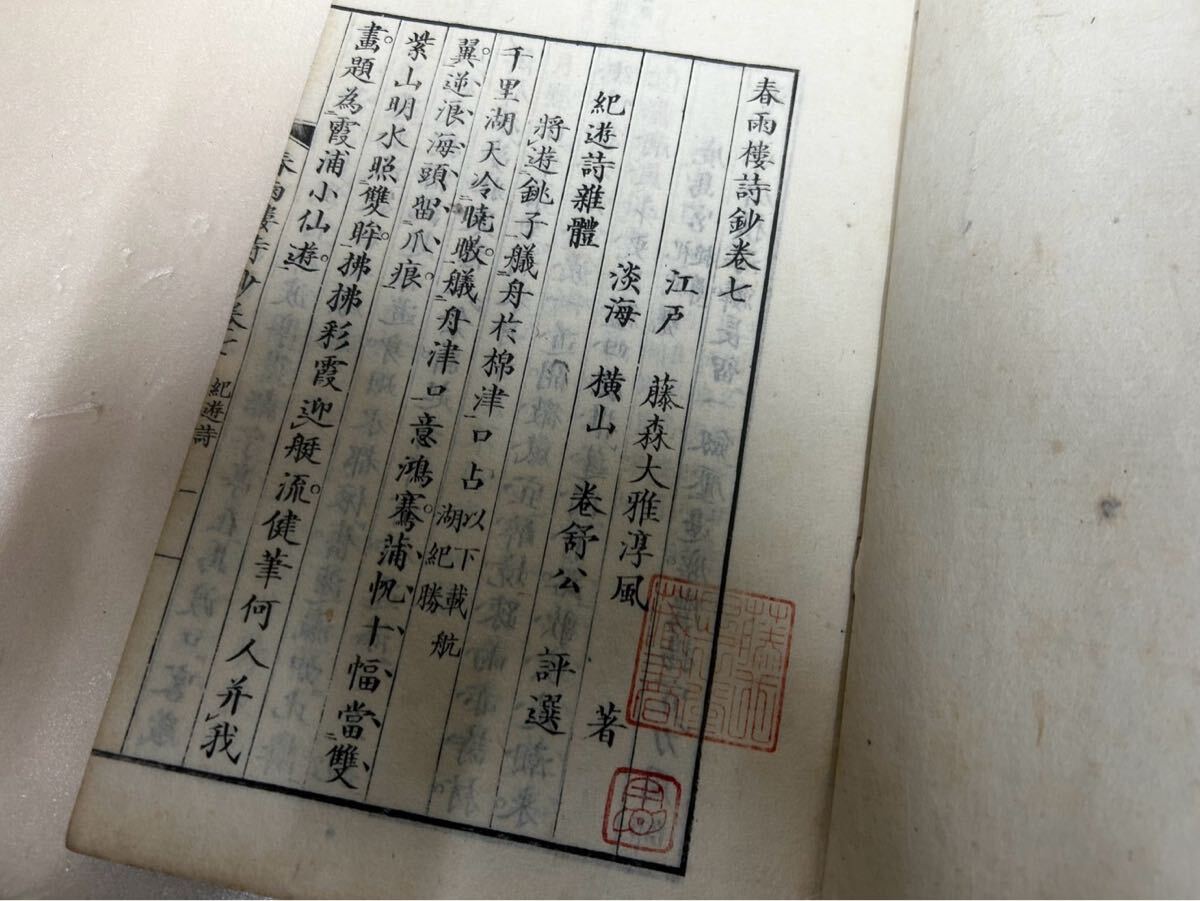 春雨樓詩鈔卷七
江戶　藤森大雅淳風　著
淡海　横山　卷舒公　評選
紀遊詩雜體
將遊銚子艤舟於棉津口占以下載航湖紀勝
千里湖天冷曉暾艤舟津口意鴻騫蒲帆十幅當雙
翼逆浪海頭留爪痕
紫山明水照雙眸拂拂彩霞迎艇流健筆何人并我
畫題為霞浦小仙遊
春雨樓詩鈔卷七　紀遊詩　一